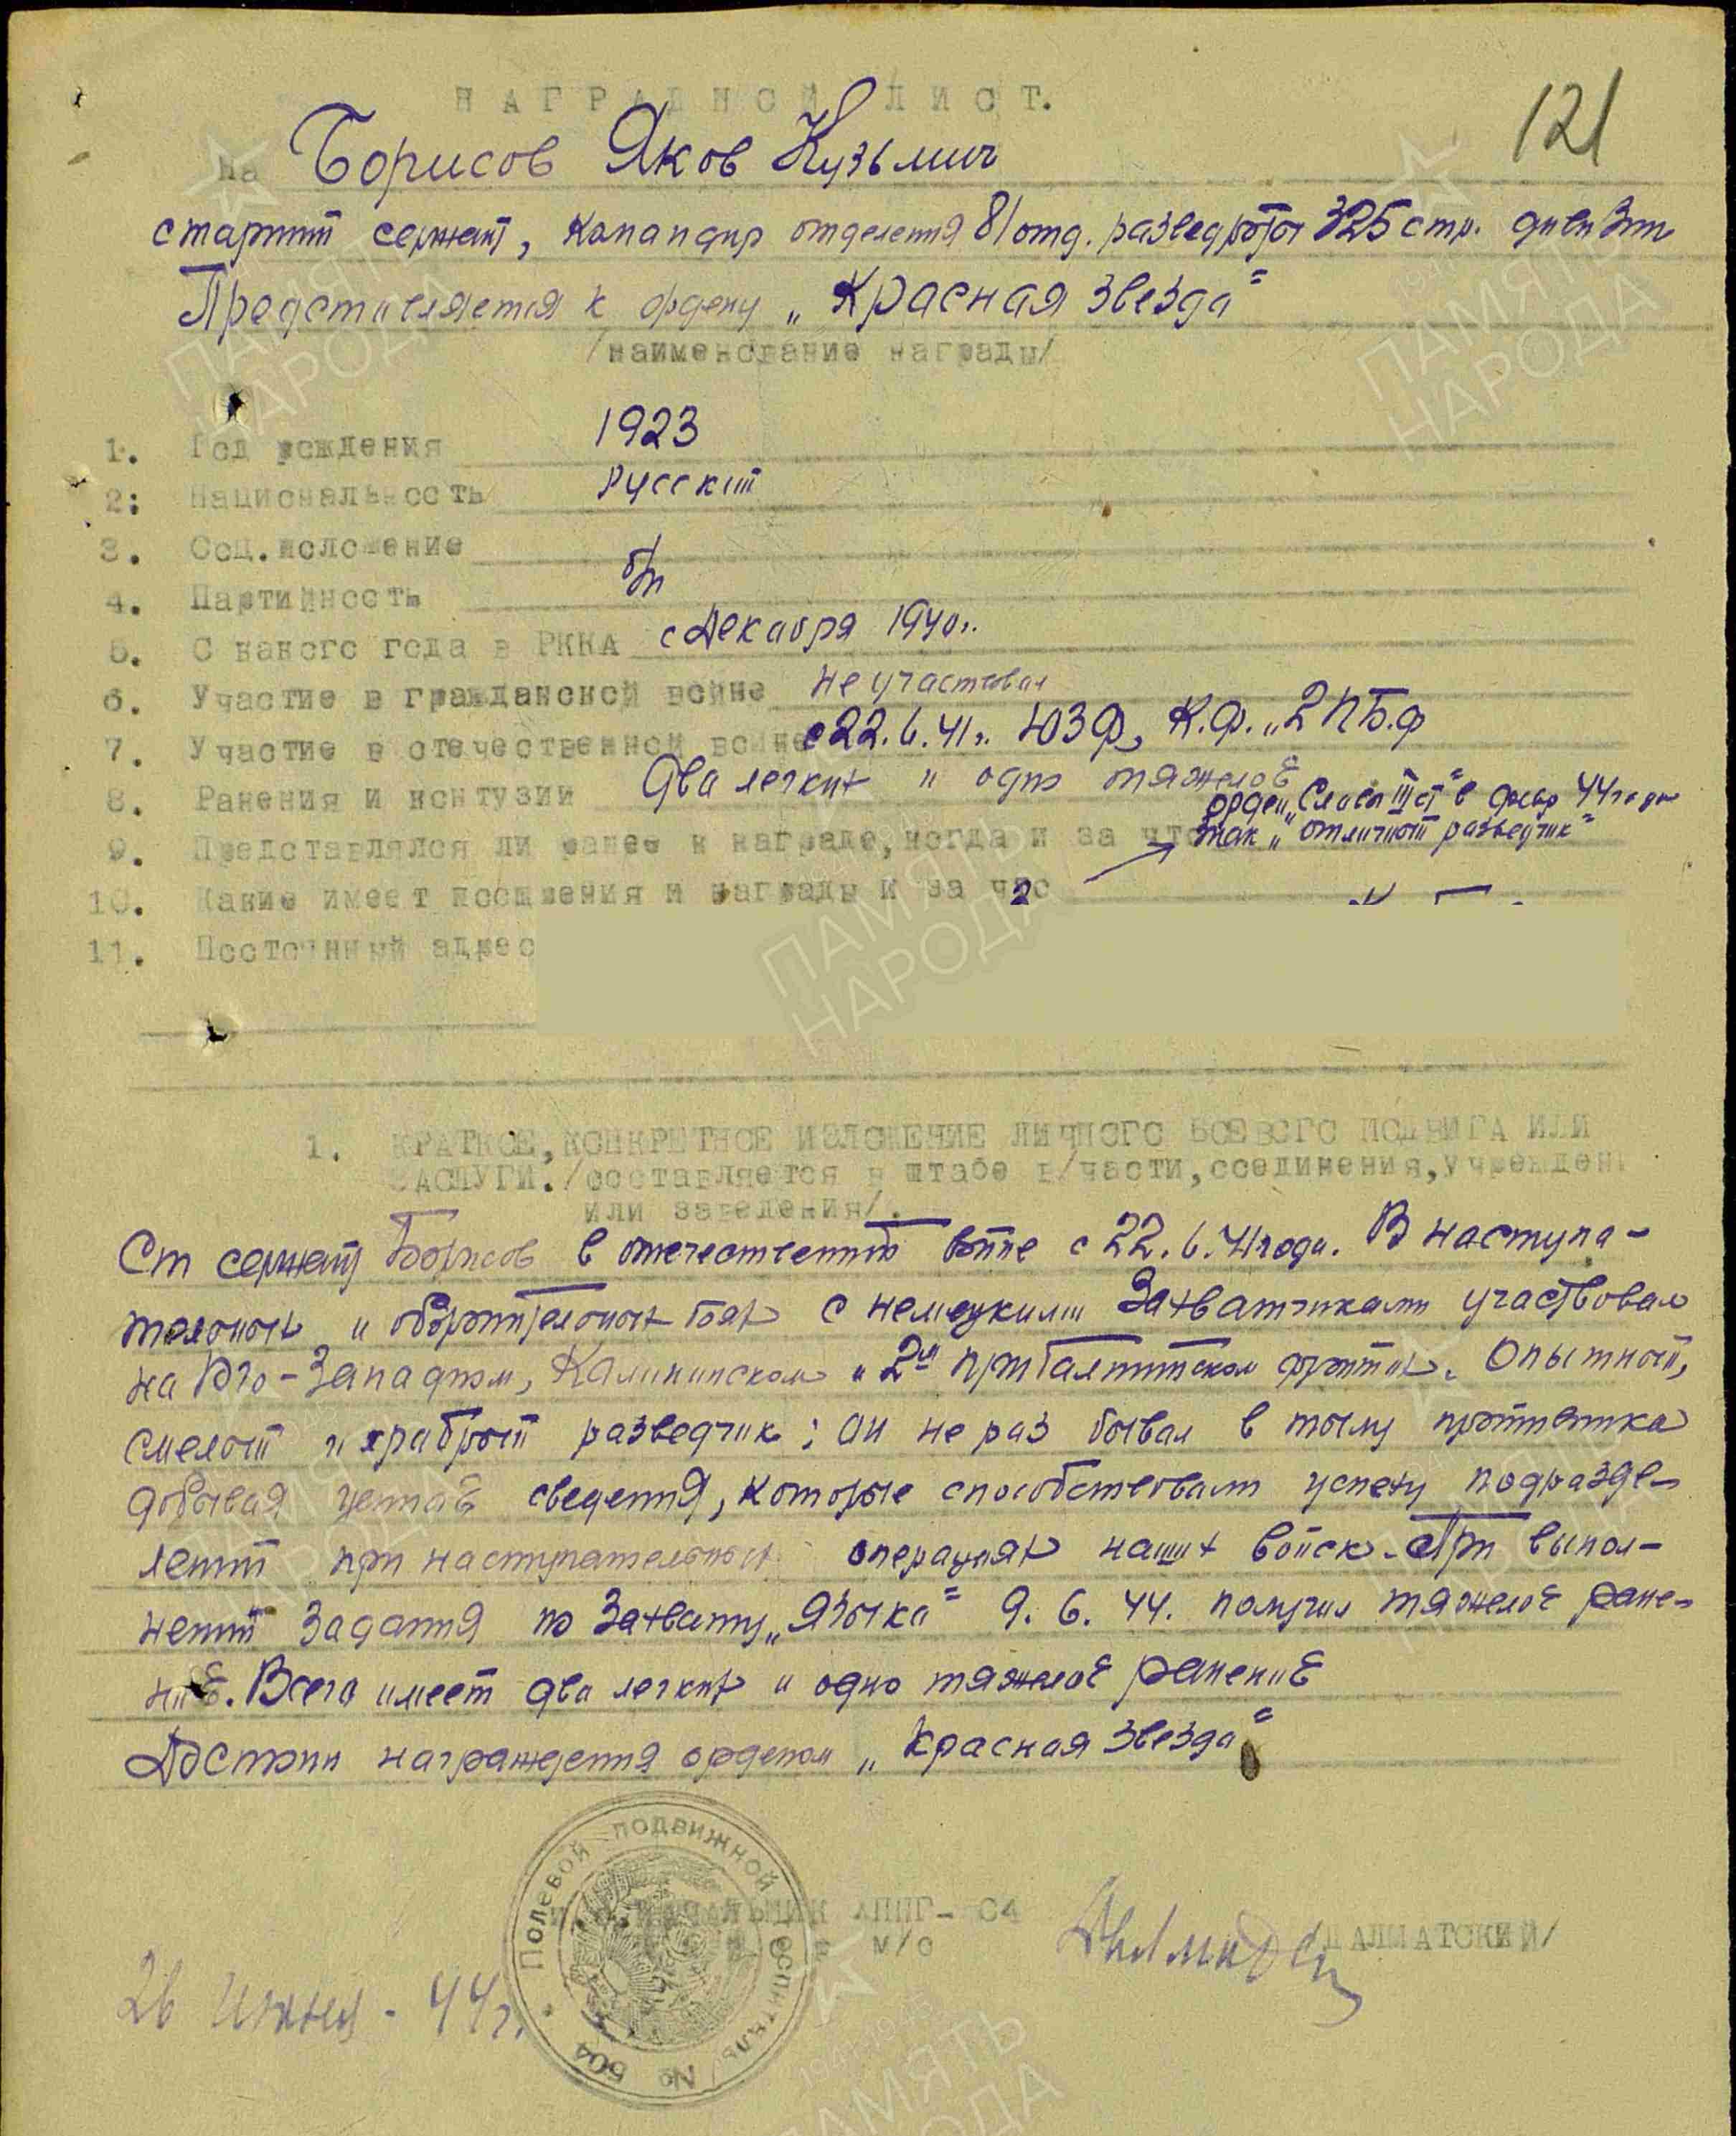 121
НАГРАДНОЙ ЛИСТ.
на Борисов Яков Кузьмич
старший сержант, командир отделения 81 отд. разведроты 325 стр. дивизии
Представляется к ордену „Красная звезда"
/наименование награды/
1. Год рождения 1923
2. Национальность Русский
3. Соц. положение
4. Партийность б/п
5. С какого года в РККА с Декабря 1940г.
6. Участие в гражданской войне не участвовал
7. Участие в отечественной войне с 22.6.41г. ЮЗФ, К.Ф. 2 ПБ.ф
8. Ранения и контузии Два легких и одно тяжелое
орден „Слава III ст" в 44 года
9. Представлялся ли ранее к награде, когда и за что знак „отличный разведчик"
10. Какие имеет поощрения и награды и за что
11. Постоянный адрес
1. КРАТКОЕ, КОНКРЕТНОЕ ИЗЛОЖЕНИЕ ЛИЧНОГО БОЕВОГО ПОДВИГА ИЛИ
ЗАСЛУГИ. /составляется в штабе в/части, соединения, учрежден
или заведения/.
Ст сержант Борисов в отечественной войне с 22.6.41 года. В наступа-
тельных и оборонительных боях с немецкими захватчиками участвовал
на Юго-Западном, Калининском и 2ом прибалтийском фронтах. Опытный,
смелый и храбрый разведчик; он не раз бывал в тылу противника
добывая ценные сведения, которые способствовали успеху подразде-
лений при наступательных операциях наших войск. При выпол-
нении задания по захвату „языка" 9.6.44. получил тяжелое ране-
ние. Всего имеет два легких и одно тяжелое ранение
Достоин награждения орденом „Красная звезда"
НАЧАЛЬНИК АППГ-С4
м/с /ДАЛМАТСКИЙ/
26 июня - 44г.
Полевой подвижной госпиталь № 504
ПАМЯТЬ НАРОДА